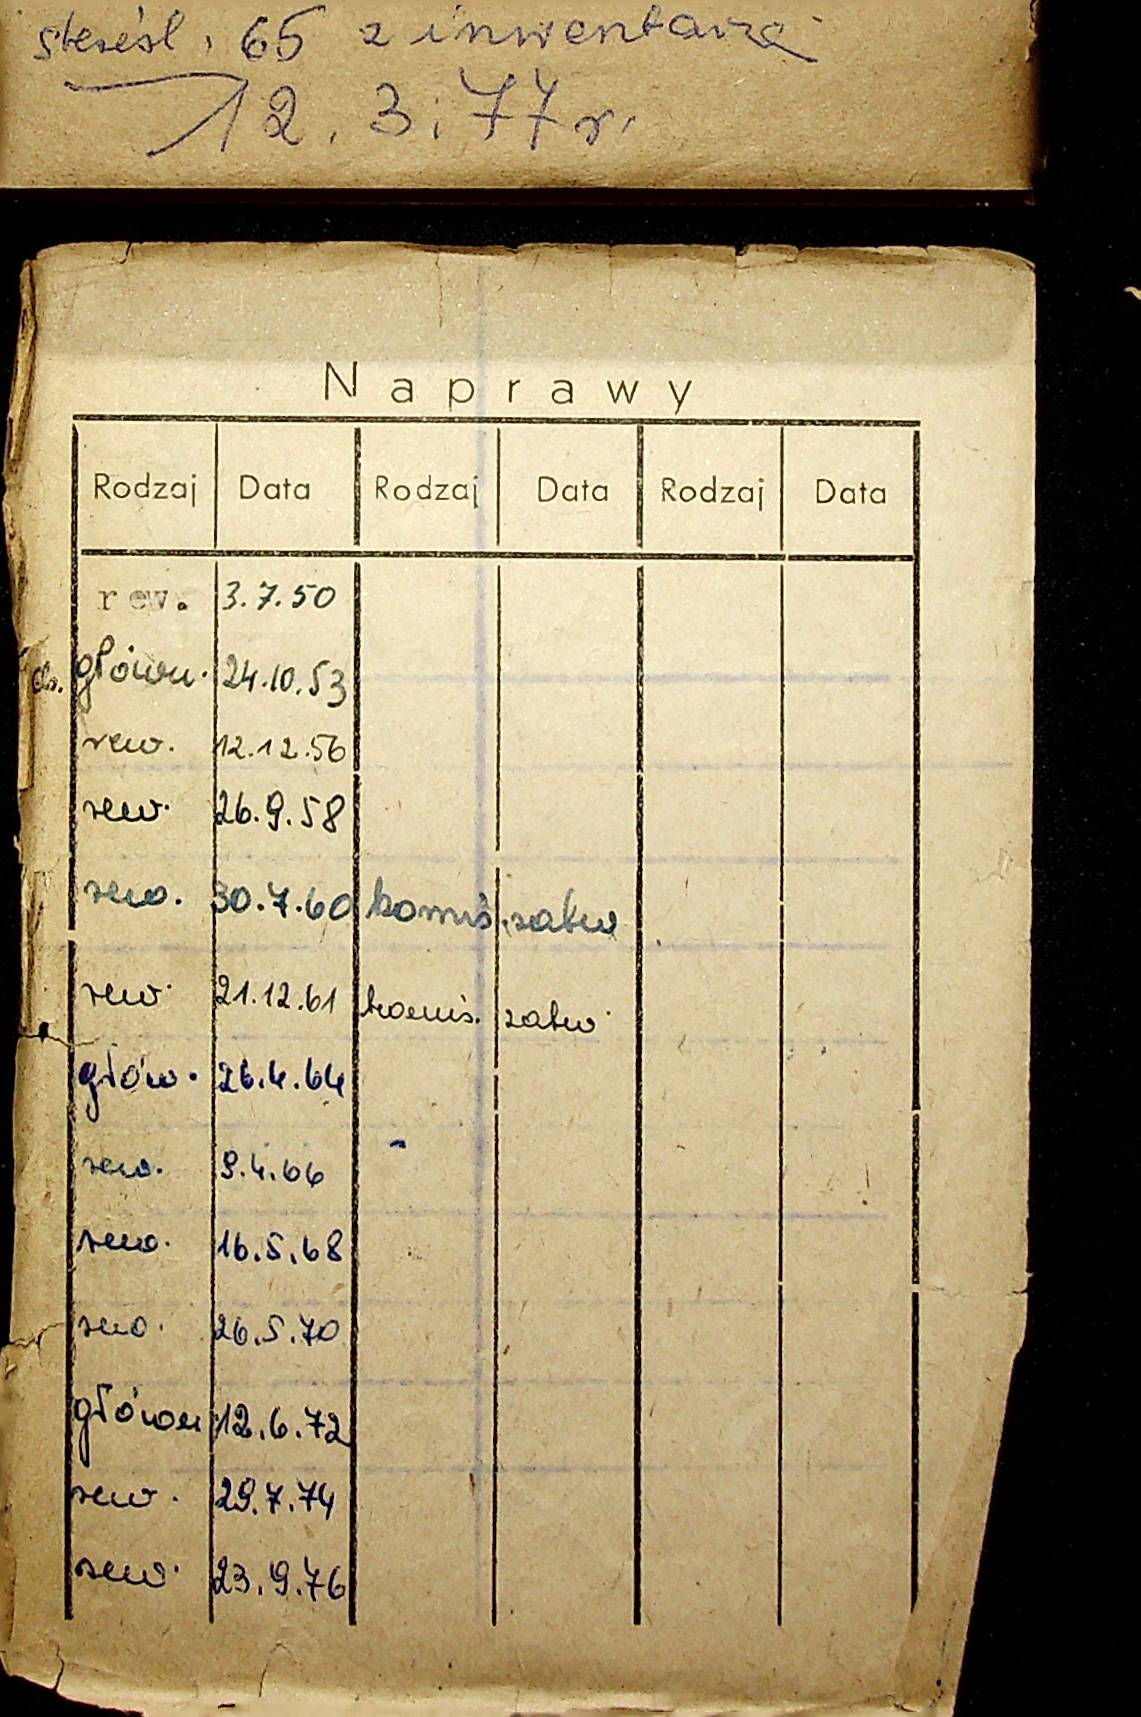 skreśl. 65 z inwentarza
12.3.77r.
Naprawy
Rodzaj Data Rodzaj Data Rodzaj Data
rew. 3.7.50
główn. 24.10.53
rew. 12.12.56
rew. 26.9.58
rew. 30.7.60 komis. zatw
rew. 21.12.61 komis. zatw.
głów. 26.4.64
rew. 9.4.66
rew. 16.5.68
rew. 26.5.70
główn 12.6.72
rew. 29.7.74
rew. 23.9.76